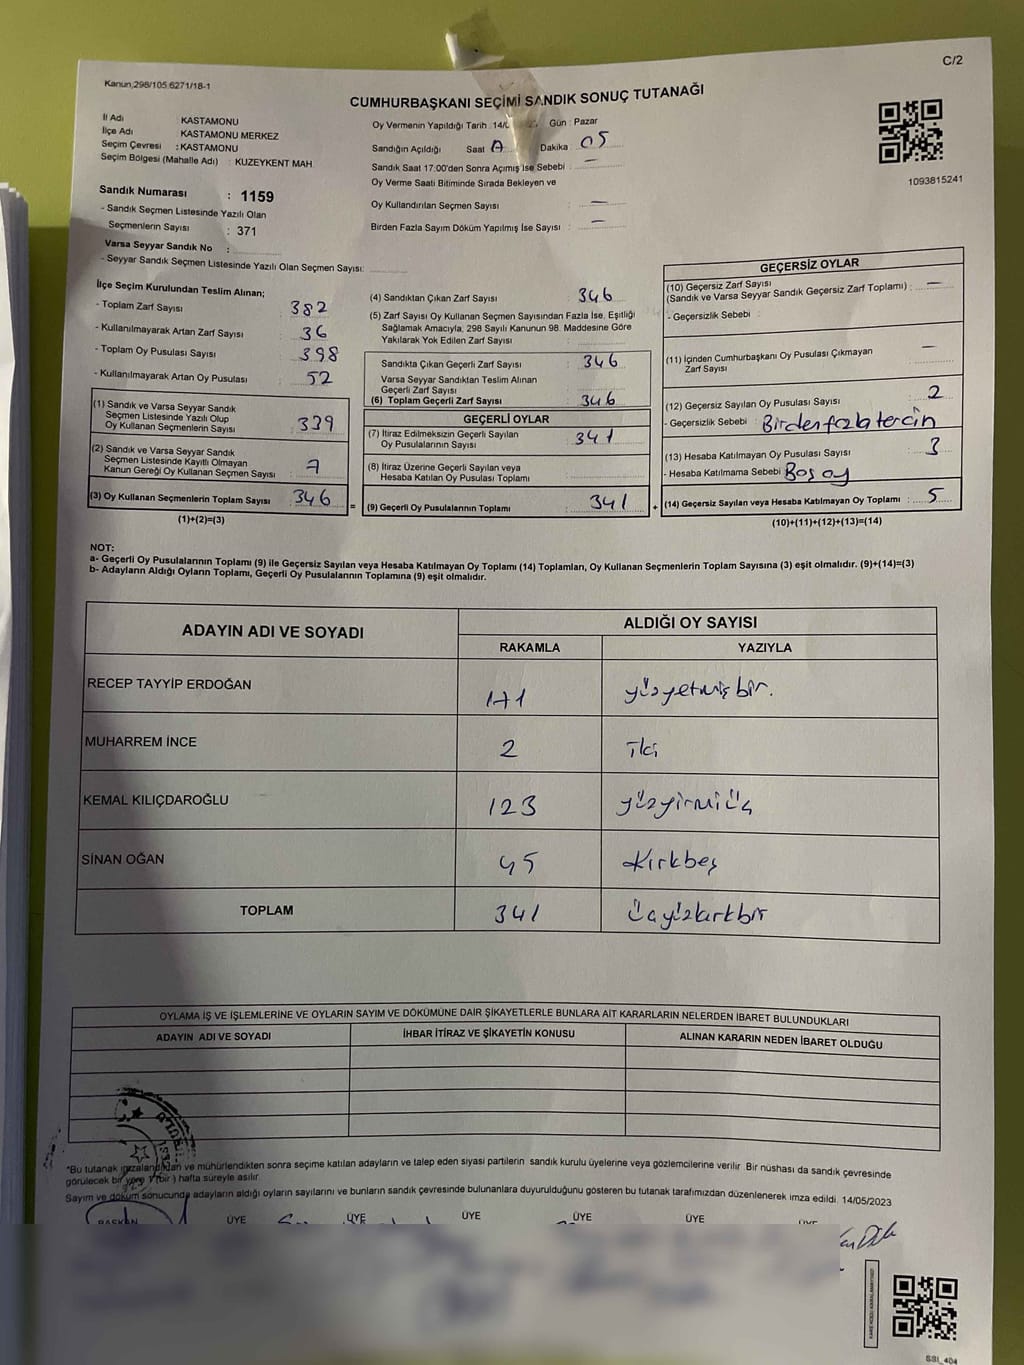 Kanun,298/105.6271/18-1
C/2
CUMHURBAŞKANI SEÇİMİ SANDIK SONUÇ TUTANAĞI
İl Adı KASTAMONU
İlçe Adı KASTAMONU MERKEZ
Seçim Çevresi : KASTAMONU
Seçim Bölgesi (Mahalle Adı) : KUZEYKENT MAH
Oy Vermenin Yapıldığı Tarih : 14/ Gün : Pazar
Sandığın Açıldığı Saat Dakika 05
Sandık Saat 17:00'den Sonra Açımış İse Sebebi : —
Oy Verme Saati Bitiminde Sırada Bekleyen ve
Oy Kullandırılan Seçmen Sayısı : —
Birden Fazla Sayım Döküm Yapılmış İse Sayısı : —
1093815241
Sandık Numarası : 1159
- Sandık Seçmen Listesinde Yazılı Olan
Seçmenlerin Sayısı : 371
Varsa Seyyar Sandık No :
- Seyyar Sandık Seçmen Listesinde Yazılı Olan Seçmen Sayısı:
İlçe Seçim Kurulundan Teslim Alınan;
- Toplam Zarf Sayısı 382
- Kullanılmayarak Artan Zarf Sayısı 36
- Toplam Oy Pusulası Sayısı 398
- Kullanılmayarak Artan Oy Pusulası 52
(1) Sandık ve Varsa Seyyar Sandık
Seçmen Listesinde Yazılı Olup
Oy Kullanan Seçmenlerin Sayısı : 339
(2) Sandık ve Varsa Seyyar Sandık
Seçmen Listesinde Kayıtlı Olmayan
Kanun Gereği Oy Kullanan Seçmen Sayısı : 7
(3) Oy Kullanan Seçmenlerin Toplam Sayısı : 346
(1)+(2)=(3)
=
(4) Sandıktan Çıkan Zarf Sayısı : 346
(5) Zarf Sayısı Oy Kullanan Seçmen Sayısından Fazla İse, Eşitliği
Sağlamak Amacıyla, 298 Sayılı Kanunun 98. Maddesine Göre
Yakılarak Yok Edilen Zarf Sayısı :
Sandıkta Çıkan Geçerli Zarf Sayısı : 346
Varsa Seyyar Sandıktan Teslim Alınan
Geçerli Zarf Sayısı
(6) Toplam Geçerli Zarf Sayısı : 346
GEÇERLİ OYLAR
(7) İtiraz Edilmeksizin Geçerli Sayılan
Oy Pusulalarının Sayısı : 341
(8) İtiraz Üzerine Geçerli Sayılan veya
Hesaba Katılan Oy Pusulası Toplamı
(9) Geçerli Oy Pusulalarının Toplamı : 341
+
GEÇERSİZ OYLAR
(10) Geçersiz Zarf Sayısı
(Sandık ve Varsa Seyyar Sandık Geçersiz Zarf Toplamı) : —
- Geçersizlik Sebebi :
(11) İçinden Cumhurbaşkanı Oy Pusulası Çıkmayan
Zarf Sayısı : —
(12) Geçersiz Sayılan Oy Pusulası Sayısı : 2
- Geçersizlik Sebebi : Birden fazla tercih
(13) Hesaba Katılmayan Oy Pusulası Sayısı : 3
- Hesaba Katılmama Sebebi Boş oy
(14) Geçersiz Sayılan veya Hesaba Katılmayan Oy Toplamı : 5
(10)+(11)+(12)+(13)=(14)
NOT:
a- Geçerli Oy Pusulalarının Toplamı (9) ile Geçersiz Sayılan veya Hesaba Katılmayan Oy Toplamı (14) Toplamları, Oy Kullanan Seçmenlerin Toplam Sayısına (3) eşit olmalıdır. (9)+(14)=(3)
b- Adayların Aldığı Oyların Toplamı, Geçerli Oy Pusulalarının Toplamına (9) eşit olmalıdır.
ADAYIN ADI VE SOYADI ALDIĞI OY SAYISI
RAKAMLA YAZIYLA
RECEP TAYYİP ERDOĞAN 171 yüzyetmişbir.
MUHARREM İNCE 2 iki
KEMAL KILIÇDAROĞLU 123 yüzyirmiüç
SİNAN OĞAN 45 Kırkbeş
TOPLAM 341 üçyüzkırkbir
OYLAMA İŞ VE İŞLEMLERİNE VE OYLARIN SAYIM VE DÖKÜMÜNE DAİR ŞİKAYETLERLE BUNLARA AİT KARARLARIN NELERDEN İBARET BULUNDUKLARI
ADAYIN ADI VE SOYADI İHBAR İTİRAZ VE ŞİKAYETİN KONUSU ALINAN KARARIN NEDEN İBARET OLDUĞU
*Bu tutanak imzalandıktan ve mühürlendikten sonra seçime katılan adayların ve talep eden siyasi partilerin sandık kurulu üyelerine veya gözlemcilerine verilir. Bir nüshası da sandık çevresinde
görülecek bir yere 1 (bir) hafta süreyle asılır
Sayım ve döküm sonucunda adayların aldığı oyların sayılarını ve bunların sandık çevresinde bulunanlara duyurulduğunu gösteren bu tutanak tarafımızdan düzenlenerek imza edildi. 14/05/2023
BAŞKAN ÜYE ÜYE ÜYE ÜYE ÜYE ÜYE
SSI_404